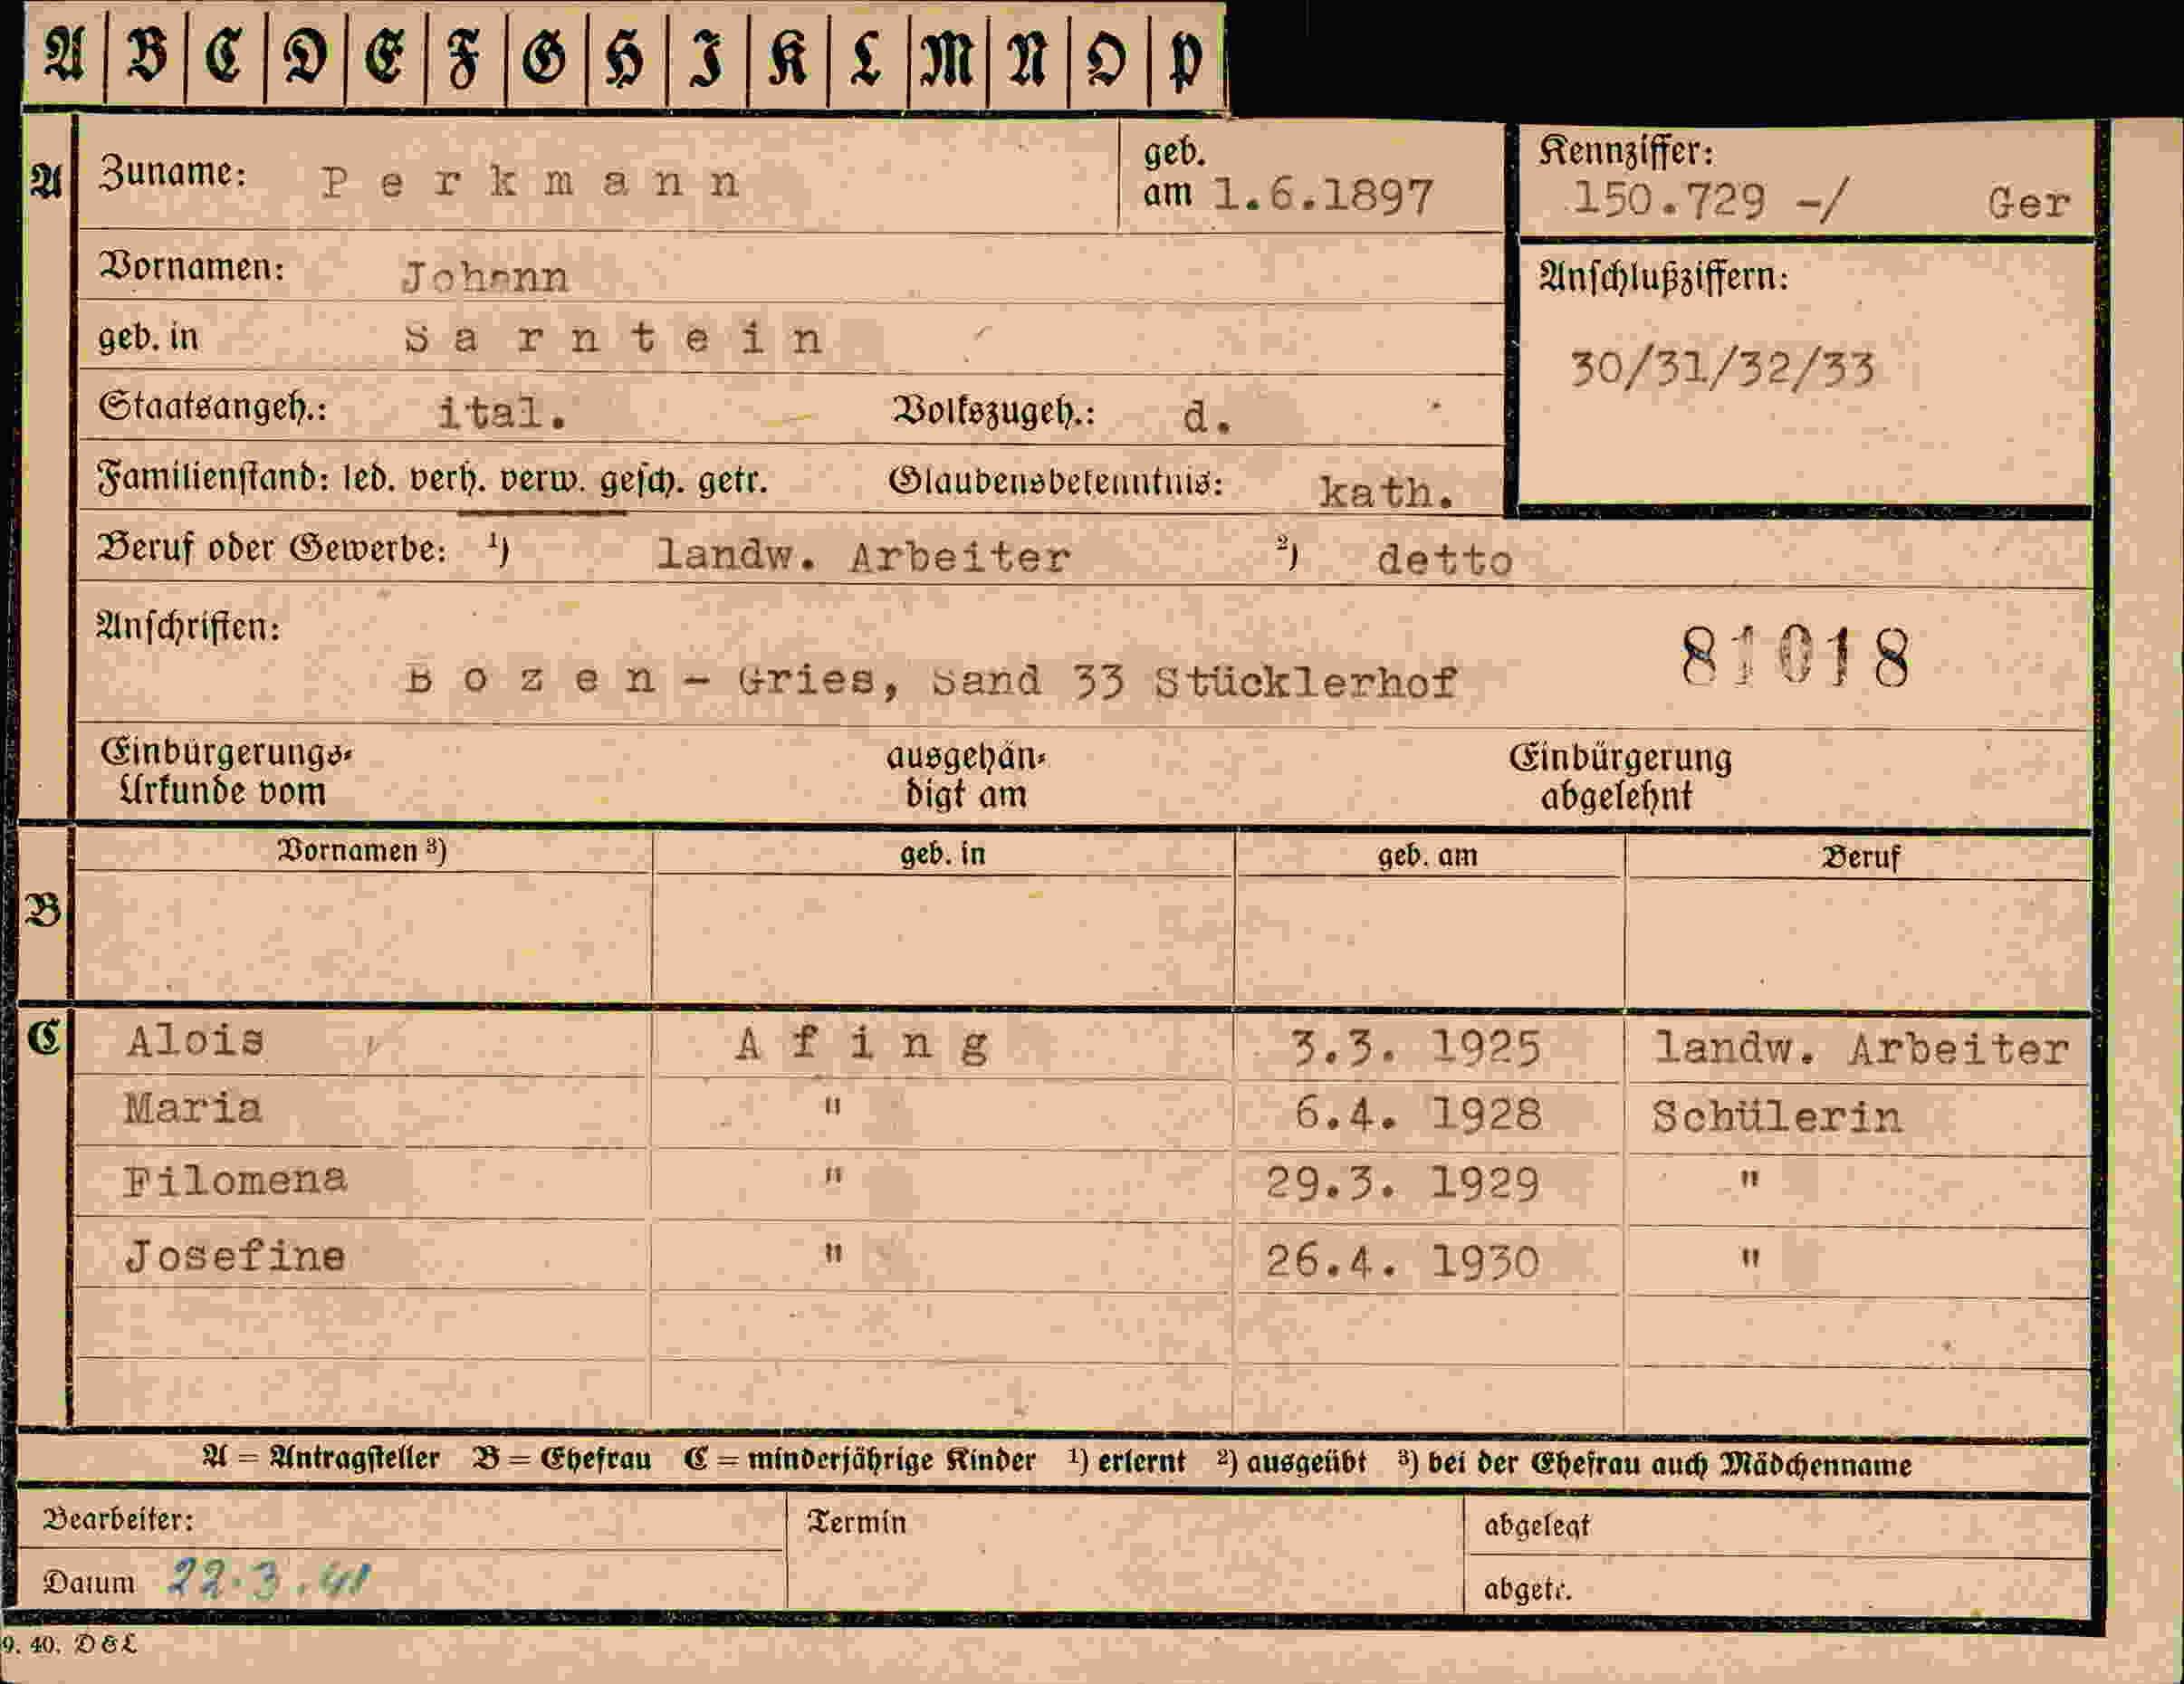 A B C D E F G H I K L M N O P
A Zuname: Perkmann geb. am 1.6.1897 Kennziffer: 150.729 -/ Ger
Vornamen: Johann Anschlußziffern:
geb. in Sarntein 30/31/32/33
Staatsangeh.: ital. Volkszugeh.: d.
Familienstand: led. verh. verw. gesch. getr. Glaubensbekenntnis: kath.
Beruf oder Gewerbe: ¹) landw. Arbeiter ²) detto
Anschriften: 81018
Bozen - Gries, Sand 33 Stücklerhof
Einbürgerungs- ausgehän- Einbürgerung
Urkunde vom digt am abgelehnt
Vornamen ³) geb. in geb. am Beruf
B
C Alois Afing 3.3. 1925 landw. Arbeiter
Maria " 6.4. 1928 Schülerin
Filomena " 29.3. 1929 "
Josefine " 26.4. 1930 "
A = Antragsteller B = Ehefrau C = minderjährige Kinder ¹) erlernt ²) ausgeübt ³) bei der Ehefrau auch Mädchenname
Bearbeiter: Termin abgelegt
Datum 22.3.41 abgetr.
9. 40. D & L